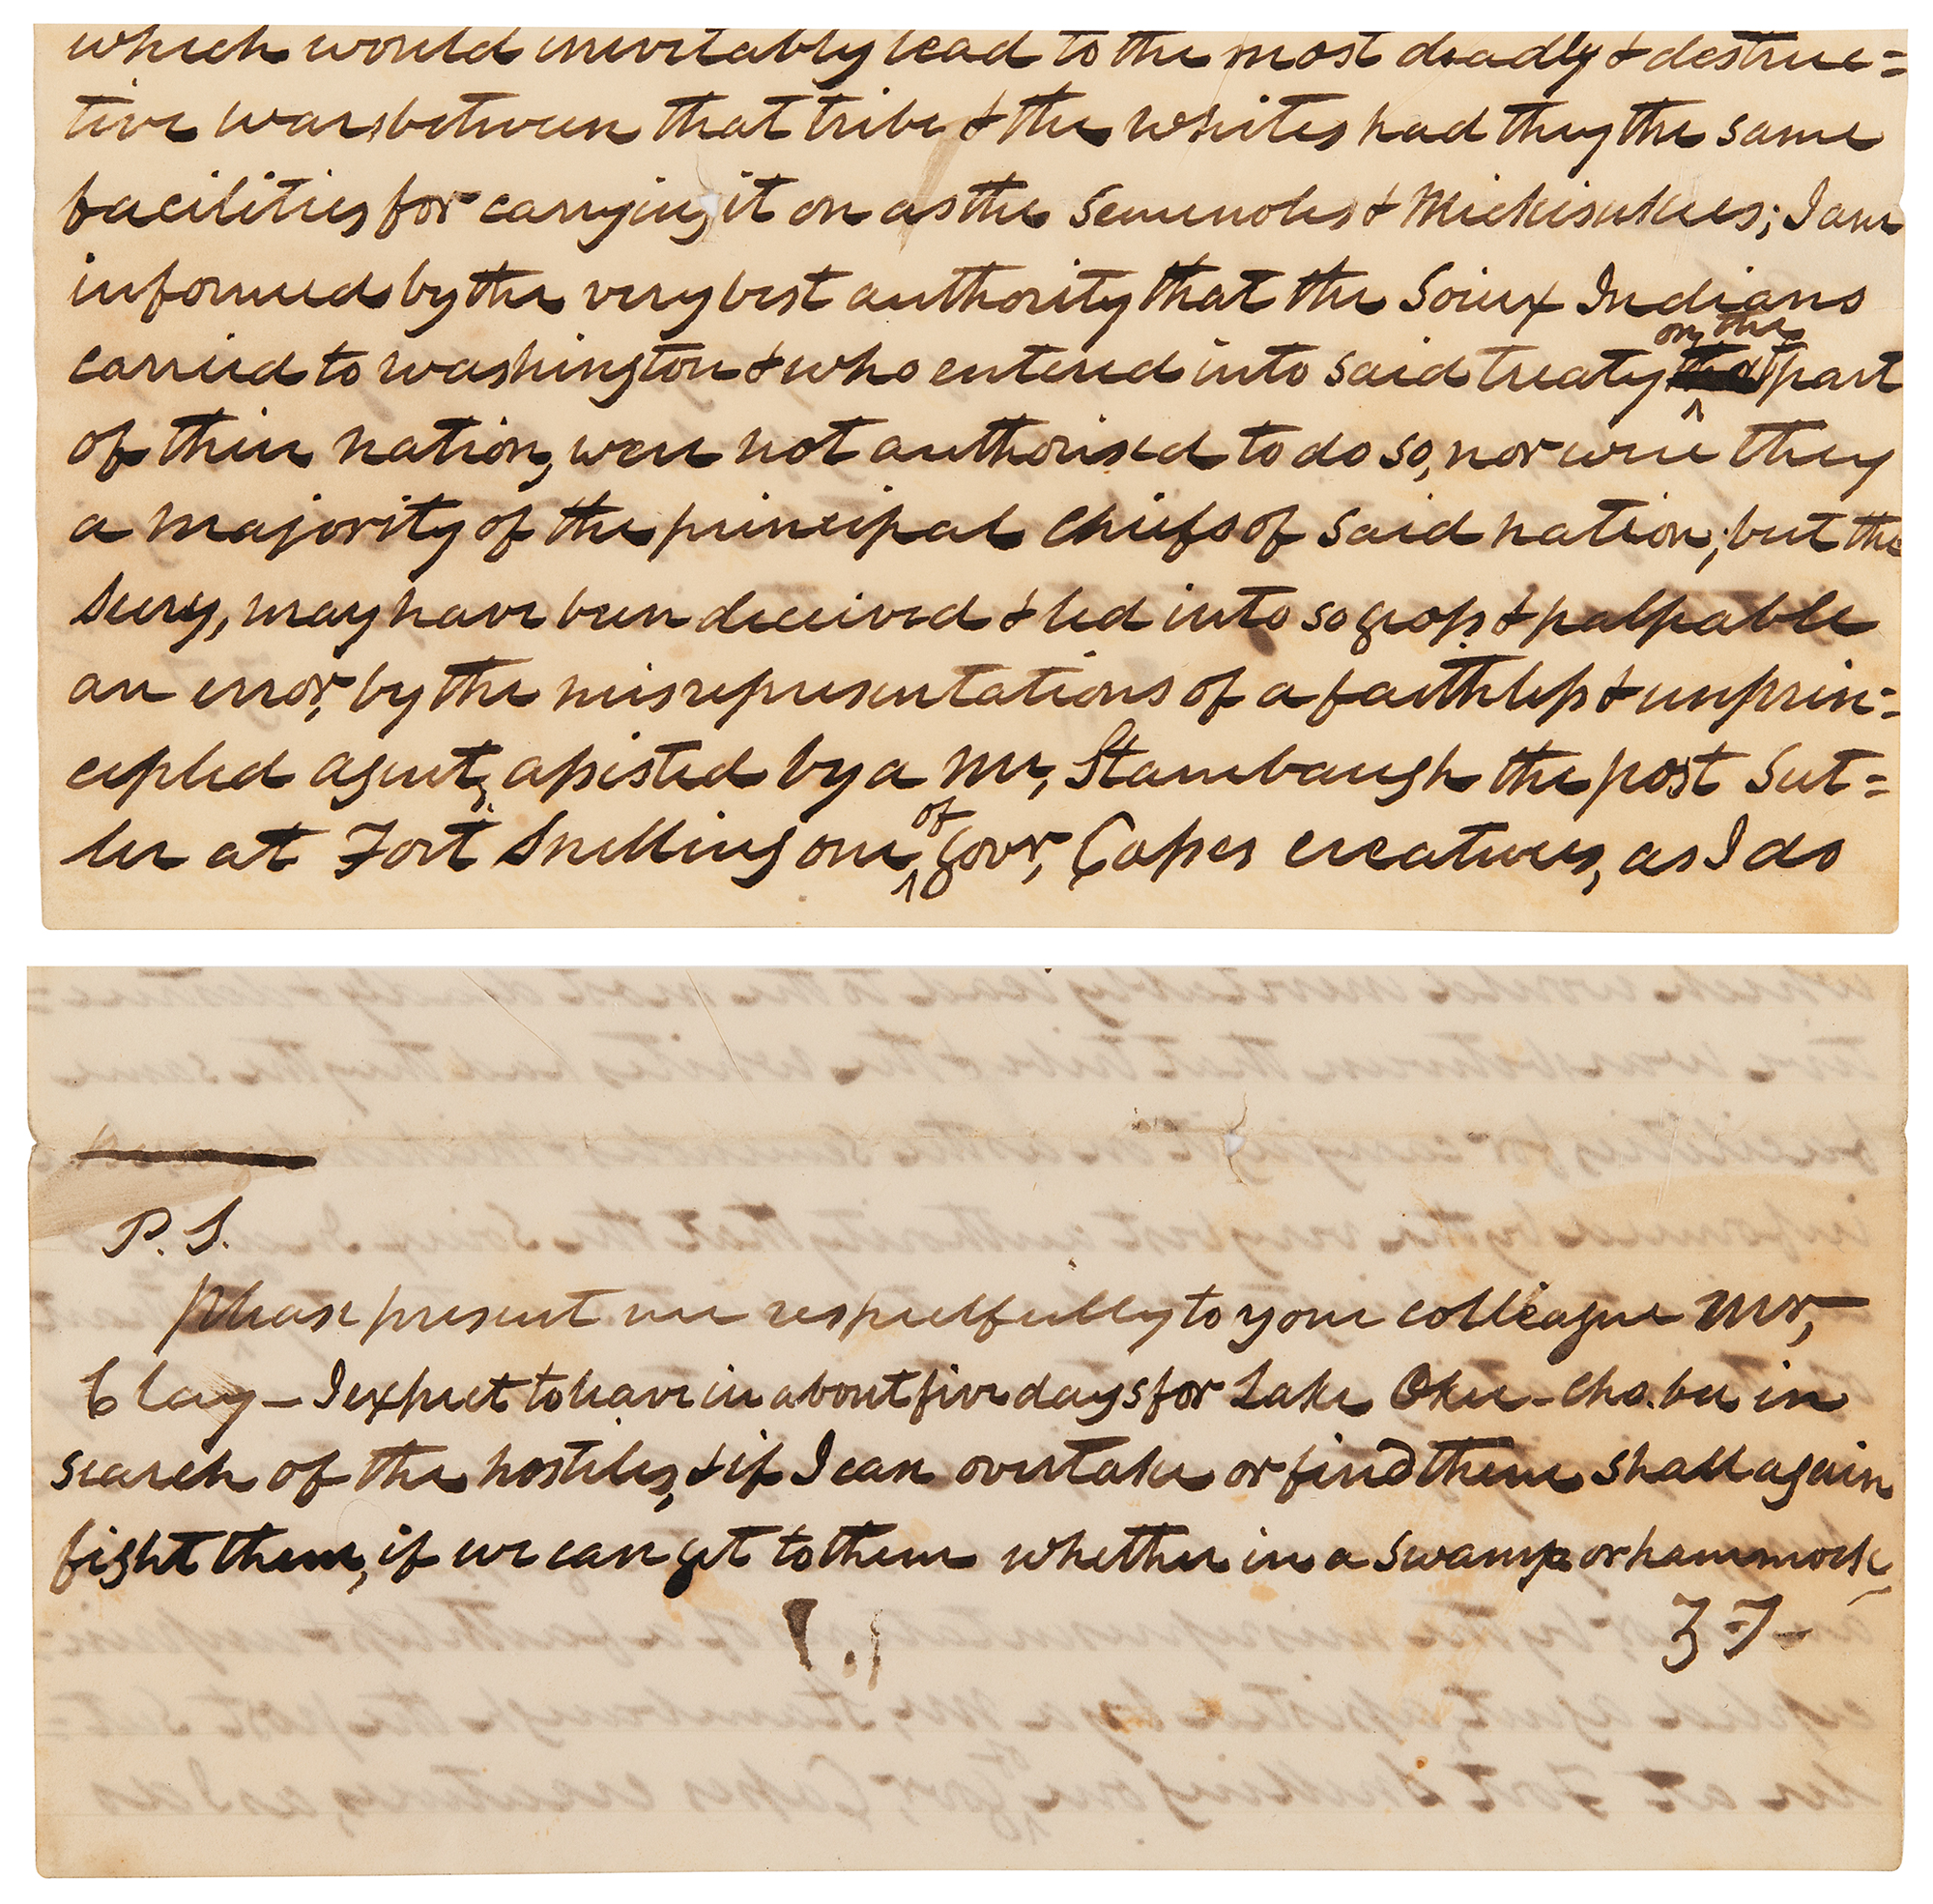 which would inevitably lead to the most deadly & destruc=
tive war, between that tribe & the whites had they the same
facilities for carrying it on as the Seminoles & Mickisukees; I am
informed by the very best authority that the Soiux Indians
carried to washington & who entered into said treaty on the part
of their nation, were not authorised to do so, nor were they
a majority of the principal chiefs of said nation; but the
Secry, may have been deceived & led into so gross & palpable
an error, by the misrepresentations of a faithless & unprin=
cepled agent, assisted by a Mr, Stambaugh the post Sut=
ler at Fort Snelling one of Govr, Casses creatures, as I do
P.S.
Please present me respectfully to your colleague Mr,
Clay – I expect to leave in about five days for Lake Okee-cho.bee in
search of the hostiles, & if I can overtake or find them shall again
fight them, if we can get to them whether in a swamp or hammock
Z T–